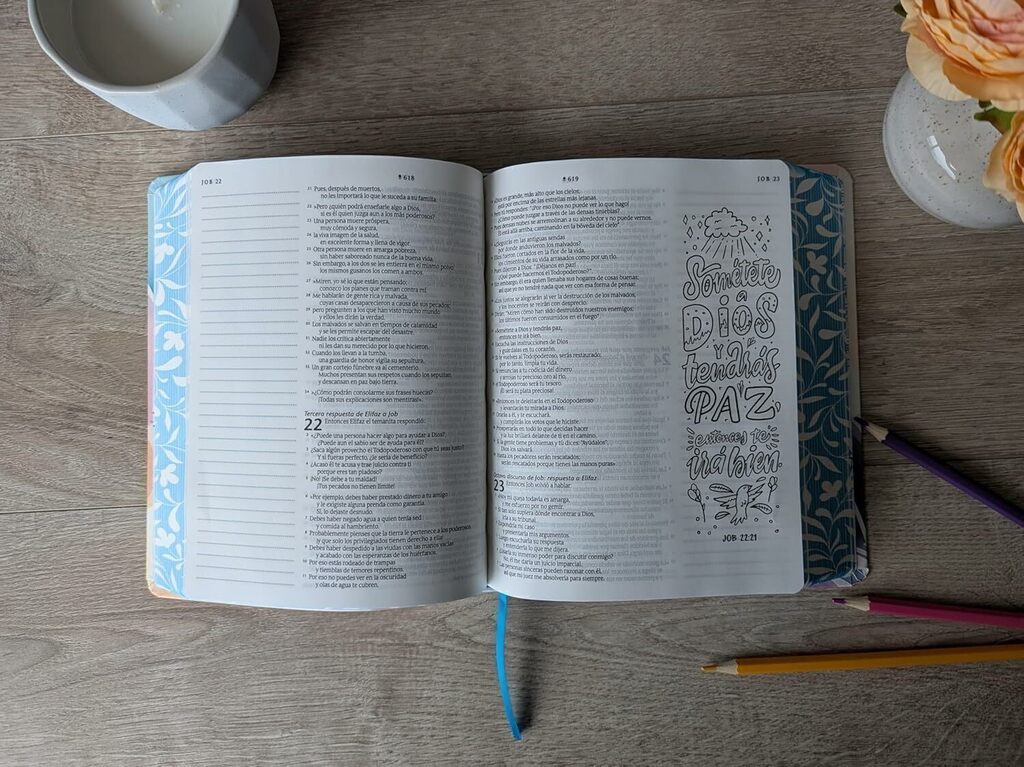 JOB 22
618
21 Pues, después de muertos,
no les importará lo que le suceda a su familia.
22 »Pero ¿quién podrá enseñarle algo a Dios,
si es él quien juzga aun a los más poderosos?
23 Una persona muere próspera,
muy cómoda y segura,
24 la viva imagen de la salud,
en excelente forma y llena de vigor.
25 Otra persona muere en amarga pobreza,
sin haber saboreado nunca de la buena vida.
26 Sin embargo, a los dos se los entierra en el mismo polvo;
los mismos gusanos los comen a ambos.
27 »Miren, yo sé lo que están pensando;
conozco los planes que traman contra mí.
28 Me hablarán de gente rica y malvada,
cuyas casas desaparecieron a causa de sus pecados;
29 pero pregunten a los que han visto mucho mundo
y ellos les dirán la verdad.
30 Los malvados se salvan en tiempos de calamidad
y se les permite escapar del desastre.
31 Nadie los critica abiertamente
ni les dan su merecido por lo que hicieron.
32 Cuando los llevan a la tumba,
una guardia de honor vigila su sepultura.
33 Un gran cortejo fúnebre va al cementerio.
Muchos presentan sus respetos cuando los sepultan,
y descansan en paz bajo tierra.
34 »¿Cómo podrán consolarme sus frases huecas?
¡Todas sus explicaciones son mentiras!».
Tercera respuesta de Elifaz a Job
22 Entonces Elifaz el temanita respondió:
2 «¿Puede una persona hacer algo para ayudar a Dios?
¿Puede aun el sabio ser de ayuda para él?
3 ¿Saca algún provecho el Todopoderoso con que tú seas justo?
Y si fueras perfecto, ¿le sería de beneficio?
4 ¿Acaso él te acusa y trae juicio contra ti
porque eres tan piadoso?
5 ¡No! ¡Se debe a tu maldad!
¡Tus pecados no tienen límite!
6 »Por ejemplo, debes haber prestado dinero a tu amigo
y le exigiste alguna prenda como garantía.
Sí, lo dejaste desnudo.
7 Debes haber negado agua a quien tenía sed
y comida al hambriento.
8 Probablemente pienses que la tierra le pertenece a los poderosos
¡y que solo los privilegiados tienen derecho a ella!
9 Debes haber despedido a las viudas con las manos vacías
y acabado con las esperanzas de los huérfanos.
10 Por eso estás rodeado de trampas
y tiemblas de temores repentinos.
11 Por eso no puedes ver en la oscuridad
y olas de agua te cubren.
619
JOB 23
»Dios es grande, más alto que los cielos,
está por encima de las estrellas más lejanas.
Pero tú respondes: "¡Por eso Dios no puede ver lo que hago!
¿Cómo puede juzgar a través de las densas tinieblas?
Pues densas nubes se arremolinan a su alrededor y no puede vernos.
Él está allá arriba, caminando en la bóveda del cielo".
»¿Seguirás en las antiguas sendas
por donde anduvieron los malvados?
Ellos fueron cortados en la flor de la vida,
los cimientos de su vida arrasados como por un río.
Pues dijeron a Dios: "¡Déjanos en paz!
¿Qué puede hacernos el Todopoderoso?".
Sin embargo, él era quien llenaba sus hogares de cosas buenas;
así que yo no tendré nada que ver con esa forma de pensar.
»Los justos se alegrarán al ver la destrucción de los malvados,
y los inocentes se reirán con desprecio.
Dirán: "Miren cómo han sido destruidos nuestros enemigos;
los últimos fueron consumidos en el fuego".
»Sométete a Dios y tendrás paz,
entonces te irá bien.
Escucha las instrucciones de Dios
y guárdalas en tu corazón.
Si te vuelves al Todopoderoso, serás restaurado;
por lo tanto, limpia tu vida.
Si renuncias a tu codicia del dinero
y arrojas tu precioso oro al río,
el Todopoderoso será tu tesoro.
¡Él será tu plata preciosa!
»Entonces te deleitarás en el Todopoderoso
y levantarás tu mirada a Dios.
Orarás a él, y te escuchará,
y cumplirás los votos que le hiciste.
Prosperarás en todo lo que decidas hacer
y la luz brillará delante de ti en el camino.
Si la gente tiene problemas y tú dices: "Ayúdalos",
Dios los salvará.
Hasta los pecadores serán rescatados;
serán rescatados porque tienes las manos puras».
Octavo discurso de Job: respuesta a Elifaz
23 Entonces Job volvió a hablar:
«Hoy, mi queja todavía es amarga,
y me esfuerzo por no gemir.
Si tan solo supiera dónde encontrar a Dios,
iría a su tribunal.
Expondría mi caso
y presentaría mis argumentos.
Luego escucharía su respuesta
y entendería lo que me dijera.
¿Usaría su inmenso poder para discutir conmigo?
No, él me daría un juicio imparcial.
Las personas sinceras pueden razonar con él,
así que mi juez me absolvería para siempre.
24
Sométete
a
DIOS
y
tendrás
PAZ,
entonces te
irá bien.
JOB 22:21